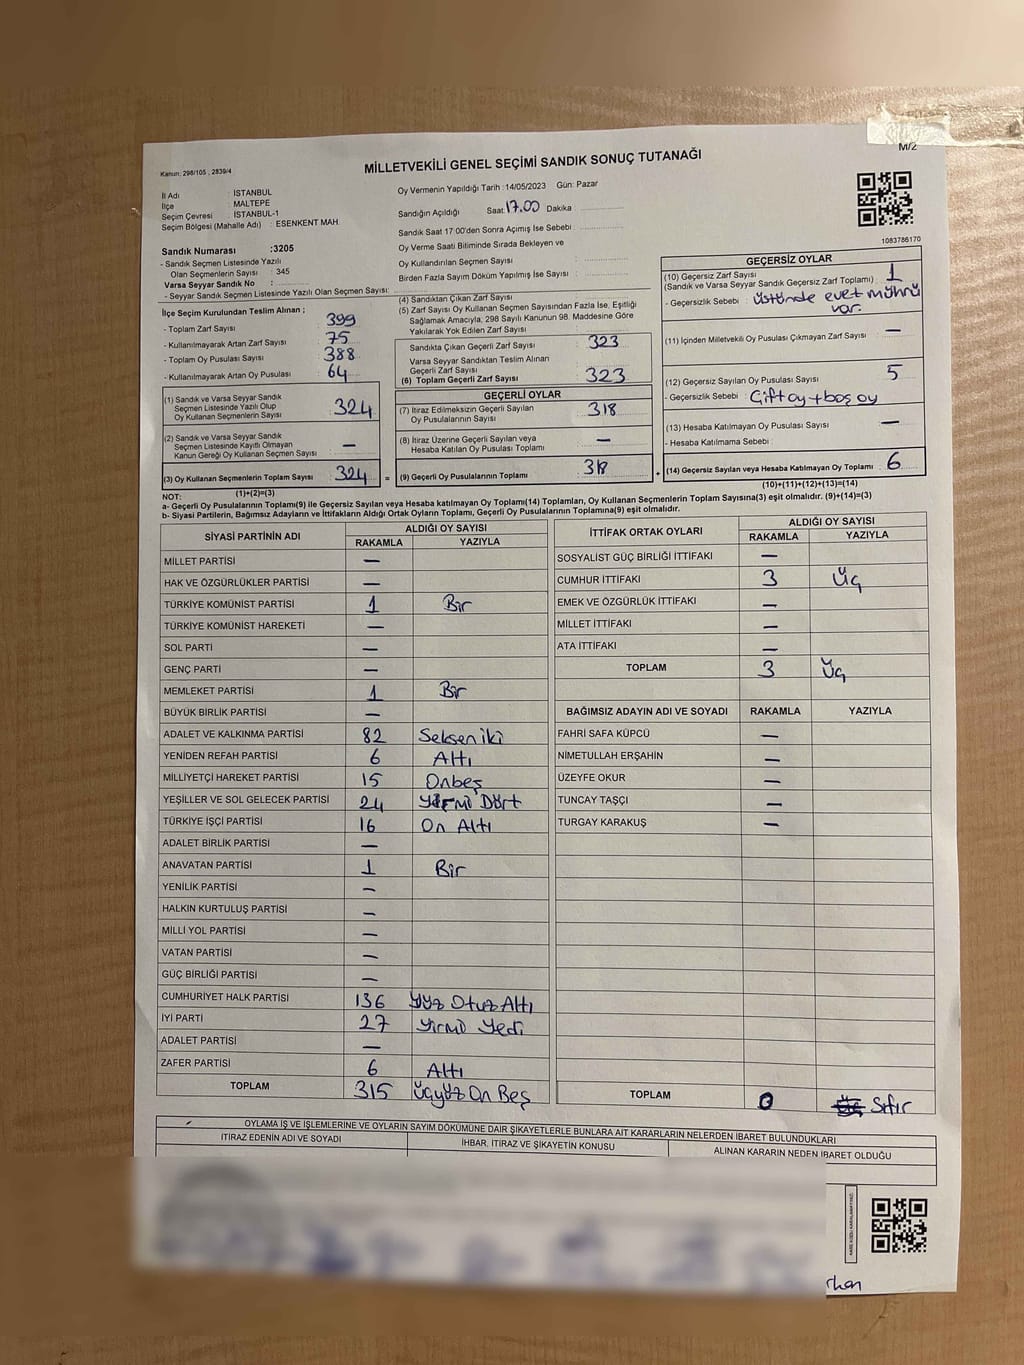 M/2
MİLLETVEKİLİ GENEL SEÇİMİ SANDIK SONUÇ TUTANAĞI
Kanun: 298/105 , 2839/4
İl Adı : İSTANBUL
İlçe : MALTEPE
Seçim Çevresi : İSTANBUL-1
Seçim Bölgesi (Mahalle Adı) : ESENKENT MAH.
Sandık Numarası :3205
- Sandık Seçmen Listesinde Yazılı
Olan Seçmenlerin Sayısı : 345
Varsa Seyyar Sandık No :
- Seyyar Sandık Seçmen Listesinde Yazılı Olan Seçmen Sayısı:
İlçe Seçim Kurulundan Teslim Alınan ;
- Toplam Zarf Sayısı : 399
- Kullanılmayarak Artan Zarf Sayısı : 75
- Toplam Oy Pusulası Sayısı : 388
- Kullanılmayarak Artan Oy Pusulası : 64
(1) Sandık ve Varsa Seyyar Sandık
Seçmen Listesinde Yazılı Olup
Oy Kullanan Seçmenlerin Sayısı : 324
(2) Sandık ve Varsa Seyyar Sandık
Seçmen Listesinde Kayıtlı Olmayan
Kanun Gereği Oy Kullanan Seçmen Sayısı : —
(3) Oy Kullanan Seçmenlerin Toplam Sayısı : 324
(1)+(2)=(3)
Oy Vermenin Yapıldığı Tarih :14/05/2023 Gün: Pazar
Sandığın Açıldığı Saat 17.00 Dakika
Sandık Saat 17:00'den Sonra Açımış İse Sebebi :
Oy Verme Saati Bitiminde Sırada Bekleyen ve
Oy Kullandırılan Seçmen Sayısı :
Birden Fazla Sayım Döküm Yapılmış İse Sayısı :
(4) Sandıktan Çıkan Zarf Sayısı :
(5) Zarf Sayısı Oy Kullanan Seçmen Sayısından Fazla İse, Eşitliği
Sağlamak Amacıyla, 298 Sayılı Kanunun 98. Maddesine Göre
Yakılarak Yok Edilen Zarf Sayısı :
Sandıkta Çıkan Geçerli Zarf Sayısı : 323
Varsa Seyyar Sandıktan Teslim Alınan
Geçerli Zarf Sayısı :
(6) Toplam Geçerli Zarf Sayısı : 323
GEÇERLİ OYLAR
(7) İtiraz Edilmeksizin Geçerli Sayılan
Oy Pusulalarının Sayısı : 318
(8) İtiraz Üzerine Geçerli Sayılan veya
Hesaba Katılan Oy Pusulası Toplamı : —
= (9) Geçerli Oy Pusulalarının Toplamı : 318 +
1083786170
GEÇERSİZ OYLAR
(10) Geçersiz Zarf Sayısı
(Sandık ve Varsa Seyyar Sandık Geçersiz Zarf Toplamı) : 1
- Geçersizlik Sebebi : üstünde evet mührü
var.
(11) İçinden Milletvekili Oy Pusulası Çıkmayan Zarf Sayısı : —
(12) Geçersiz Sayılan Oy Pusulası Sayısı : 5
- Geçersizlik Sebebi : Çift oy + boş oy
(13) Hesaba Katılmayan Oy Pusulası Sayısı : —
- Hesaba Katılmama Sebebi :
(14) Geçersiz Sayılan veya Hesaba Katılmayan Oy Toplamı : 6
(10)+(11)+(12)+(13)=(14)
NOT:
a- Geçerli Oy Pusulalarının Toplamı(9) ile Geçersiz Sayılan veya Hesaba katılmayan Oy Toplamı(14) Toplamları, Oy Kullanan Seçmenlerin Toplam Sayısına(3) eşit olmalıdır. (9)+(14)=(3)
b- Siyasi Partilerin, Bağımsız Adayların ve İttifakların Aldığı Ortak Oyların Toplamı, Geçerli Oy Pusulalarının Toplamına(9) eşit olmalıdır.
SİYASİ PARTİNİN ADI ALDIĞI OY SAYISI
RAKAMLA YAZIYLA
MİLLET PARTİSİ —
HAK VE ÖZGÜRLÜKLER PARTİSİ —
TÜRKİYE KOMÜNİST PARTİSİ 1 Bir
TÜRKİYE KOMÜNİST HAREKETİ —
SOL PARTİ —
GENÇ PARTİ —
MEMLEKET PARTİSİ 1 Bir
BÜYÜK BİRLİK PARTİSİ —
ADALET VE KALKINMA PARTİSİ 82 Seksen iki
YENİDEN REFAH PARTİSİ 6 Altı
MİLLİYETÇİ HAREKET PARTİSİ 15 Onbeş
YEŞİLLER VE SOL GELECEK PARTİSİ 24 Yirmi Dört
TÜRKİYE İŞÇİ PARTİSİ 16 On Altı
ADALET BİRLİK PARTİSİ —
ANAVATAN PARTİSİ 1 Bir
YENİLİK PARTİSİ —
HALKIN KURTULUŞ PARTİSİ —
MİLLİ YOL PARTİSİ —
VATAN PARTİSİ —
GÜÇ BİRLİĞİ PARTİSİ —
CUMHURİYET HALK PARTİSİ 136 Yüz Otuz Altı
İYİ PARTİ 27 Yirmi Yedi
ADALET PARTİSİ —
ZAFER PARTİSİ 6 Altı
TOPLAM 315 Üçyüz On Beş
İTTİFAK ORTAK OYLARI ALDIĞI OY SAYISI
RAKAMLA YAZIYLA
SOSYALİST GÜÇ BİRLİĞİ İTTİFAKI —
CUMHUR İTTİFAKI 3 Üç
EMEK VE ÖZGÜRLÜK İTTİFAKI —
MİLLET İTTİFAKI —
ATA İTTİFAKI —
TOPLAM 3 Üç
BAĞIMSIZ ADAYIN ADI VE SOYADI RAKAMLA YAZIYLA
FAHRİ SAFA KÜPCÜ —
NİMETULLAH ERŞAHİN —
ÜZEYFE OKUR —
TUNCAY TAŞÇI —
TURGAY KARAKUŞ —
TOPLAM 0 Sıfır
OYLAMA İŞ VE İŞLEMLERİNE VE OYLARIN SAYIM DÖKÜMÜNE DAİR ŞİKAYETLERLE BUNLARA AİT KARARLARIN NELERDEN İBARET BULUNDUKLARI
İTİRAZ EDENİN ADI VE SOYADI İHBAR, İTİRAZ VE ŞİKAYETİN KONUSU ALINAN KARARIN NEDEN İBARET OLDUĞU